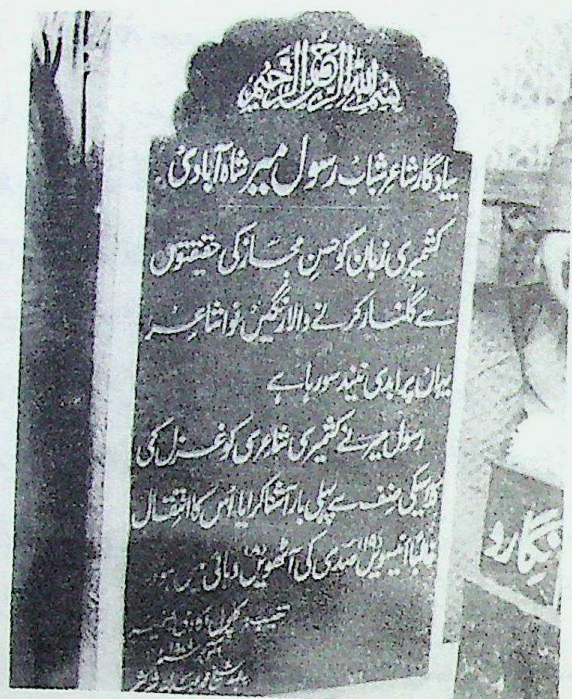 بسم اللہ الرحمن الرحیم
بیادگار شاعر شباب رسول میر شاہ آبادی
کشمیری زبان کو حسن مجاز کی حقیقتوں
سے گلنار کرنے والا رنگین نوا شاعر
یہاں پر ابدی نیند سو رہا ہے
رسول میر نے کشمیری شاعری کو غزل کی
کلاسیکی صنف سے پہلی بار آشنا کرایا اُس کا انتقال
غالباً انیسویں (۱۹) صدی کی آٹھویں (۸) دہائی میں ہوا
نگارو